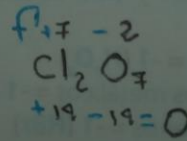 +7 - 2
Cl₂ O₇
+14 - 14 = 0